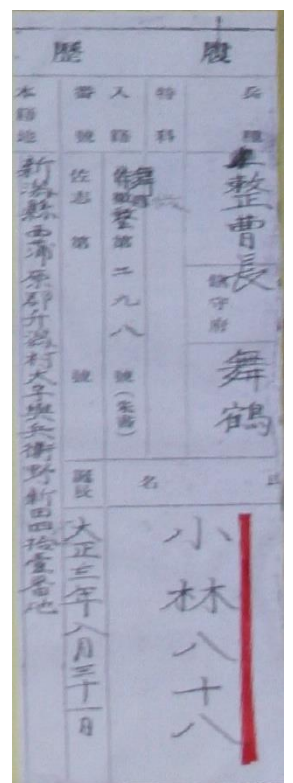 履歴
兵種
整曹長
鎮守府
舞鶴
特科
入籍番號
舞整第二九八號(朱書)
佐志第 號
本籍地
新潟縣西蒲原郡升潟村大字與兵衛野新田四拾壹番地
氏名
小林八十八
誕辰
大正三年八月三十一日